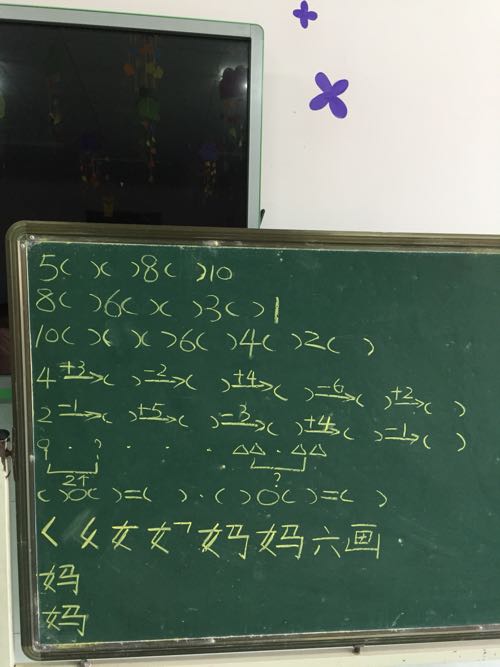 5( )( )8( )10
8( )6( )( )3( )1
10( )( )( )6( )4( )2( )
4 +3→( ) −2→( ) +4→( ) −6→( ) +2→( )
2 −1→( ) +5→( ) −3→( ) +4→( ) −1→( )
9 . ? . . . △△ . △△
2个 ?
( )○( )=( ) . ( )○( )=( )
く 女 女 妈 妈 六画
妈
妈